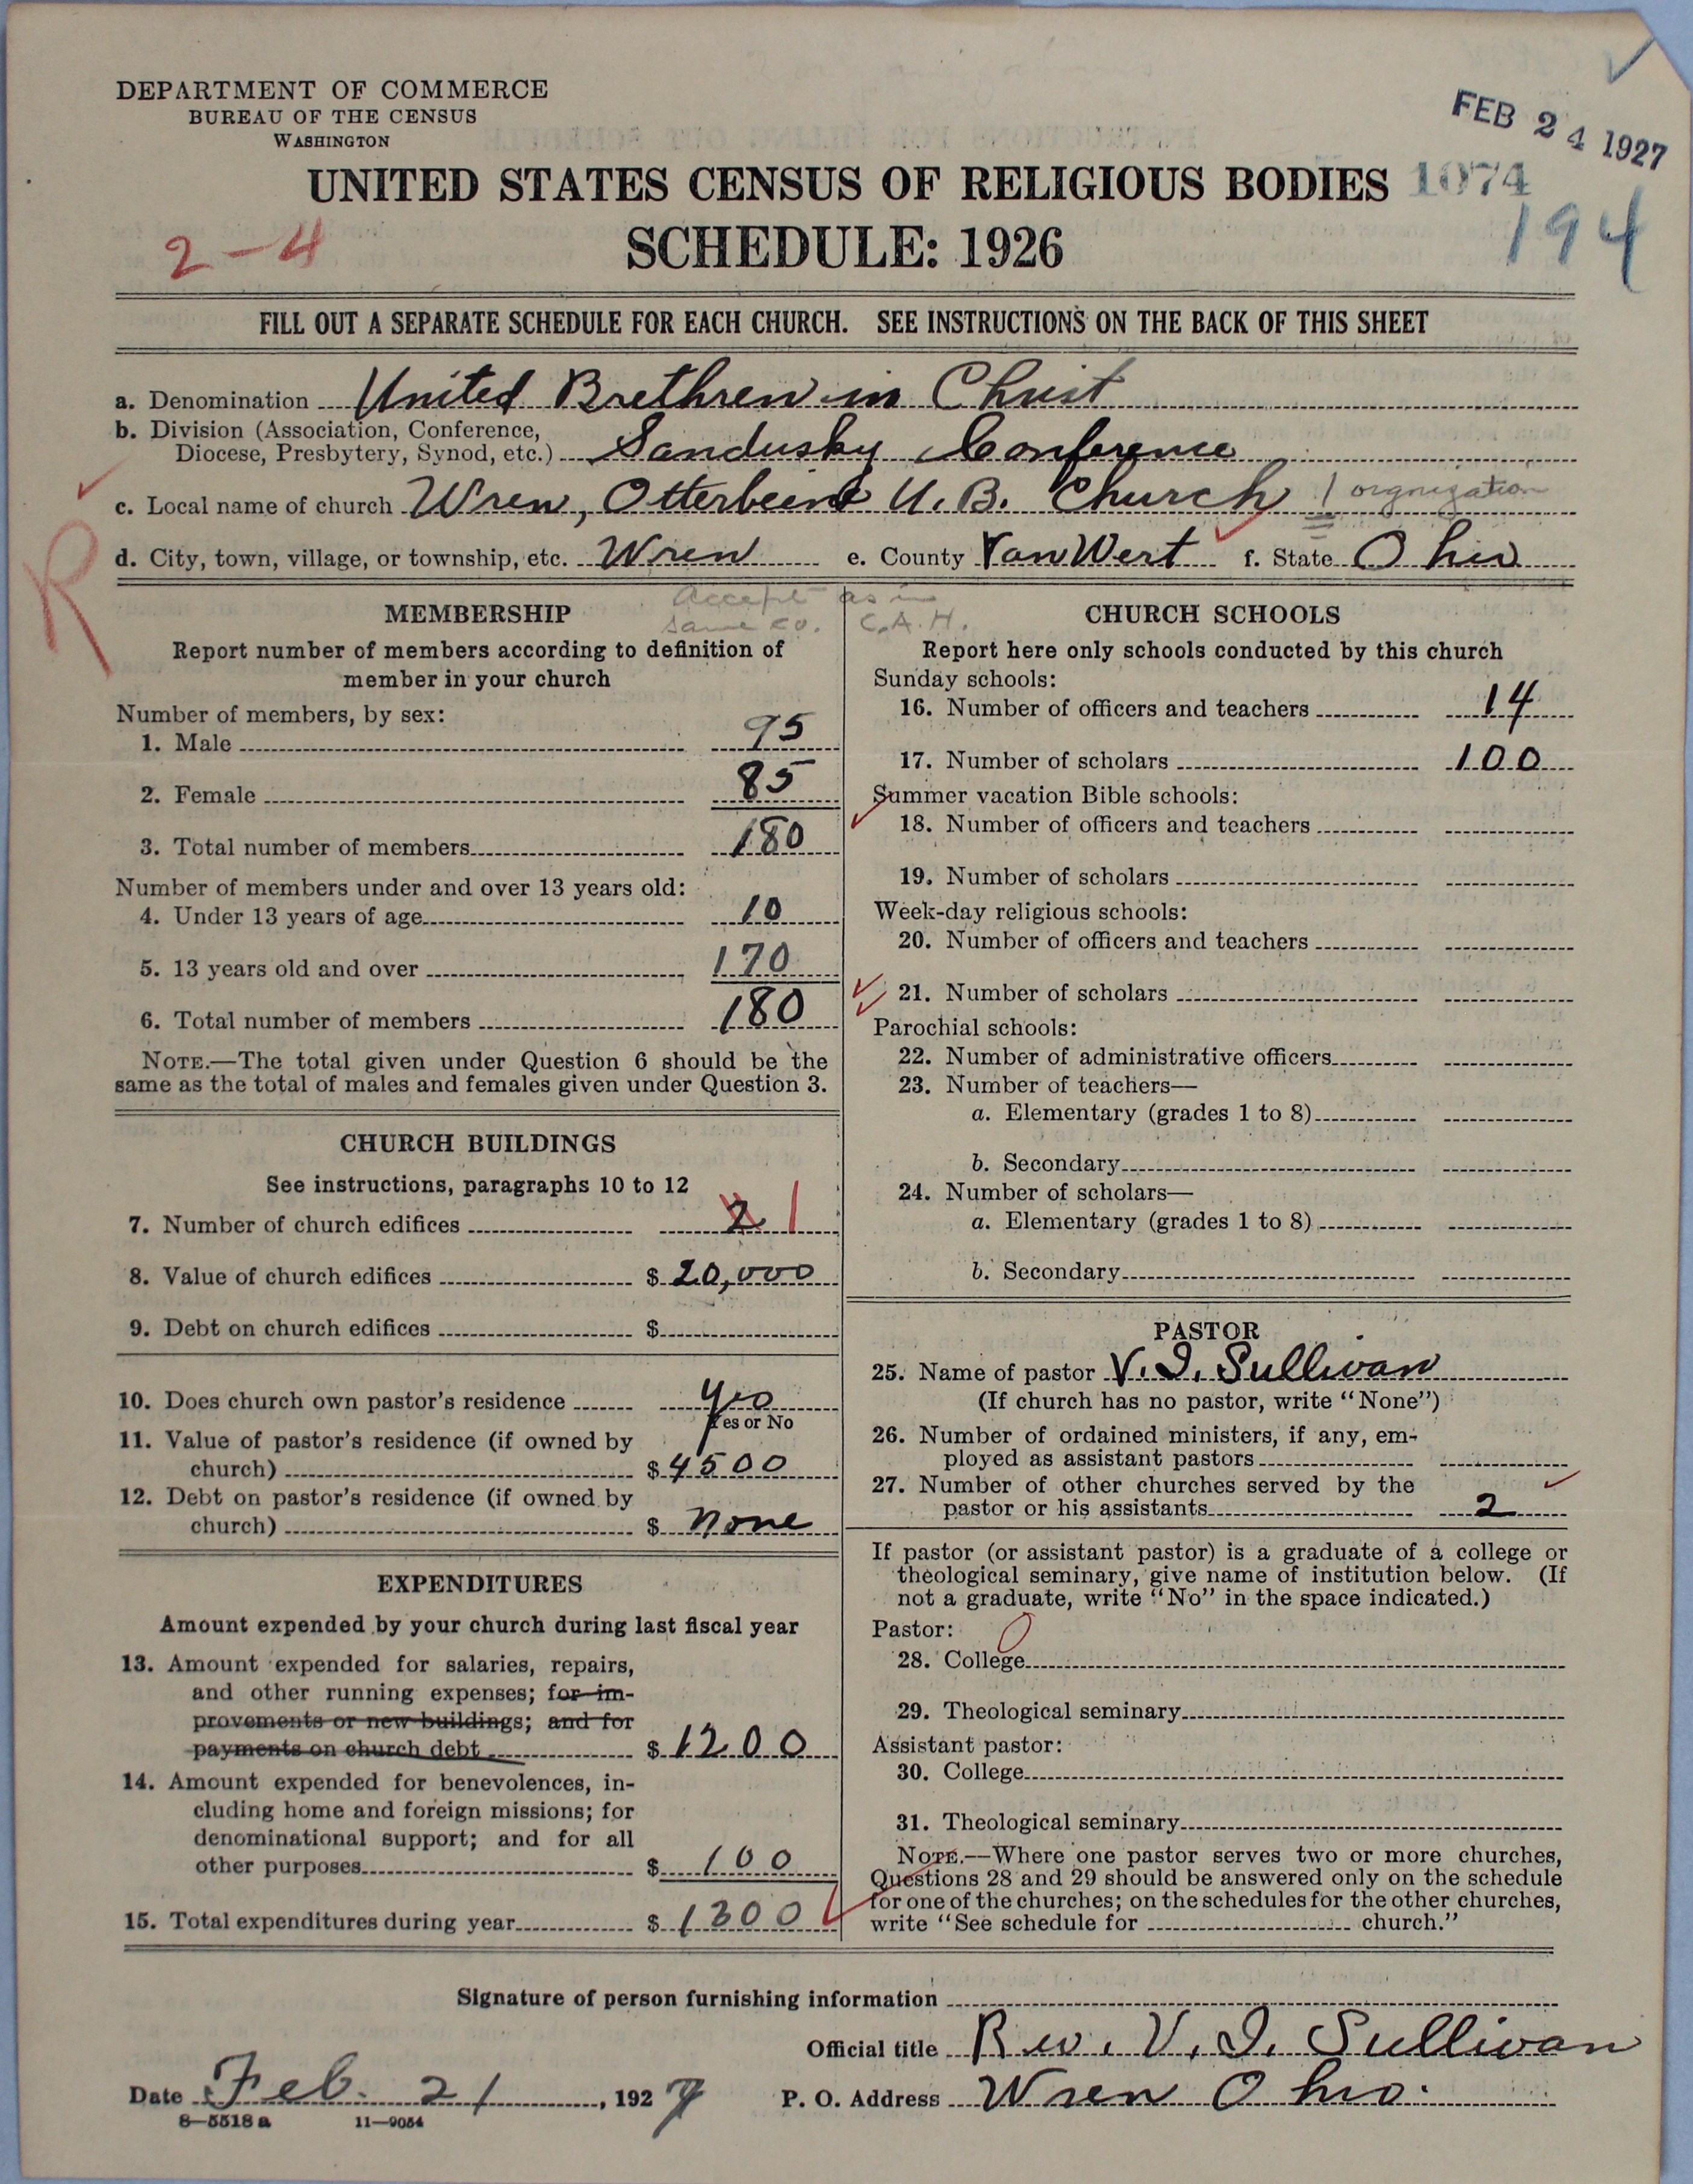 DEPARTMENT OF COMMERCE
BUREAU OF THE CENSUS
WASHINGTON
FEB 24 1927
UNITED STATES CENSUS OF RELIGIOUS BODIES 1074
194
2-4
SCHEDULE: 1926
FILL OUT A SEPARATE SCHEDULE FOR EACH CHURCH. SEE INSTRUCTIONS ON THE BACK OF THIS SHEET
a. Denomination United Brethren in Christ
b. Division (Association, Conference,
Diocese, Presbytery, Synod, etc.) Sandusky Conference
c. Local name of church Wren, Otterbein U. B. Church 1 orgnization
d. City, town, village, or township, etc. Wren e. County Van Wert f. State Ohio
R
Accept as in
same co. C.A.H.
MEMBERSHIP
Report number of members according to definition of
member in your church
Number of members, by sex:
1. Male 95
2. Female 85
3. Total number of members 180
Number of members under and over 13 years old:
4. Under 13 years of age 10
5. 13 years old and over 170
6. Total number of members 180
NOTE.—The total given under Question 6 should be the
same as the total of males and females given under Question 3.
CHURCH BUILDINGS
See instructions, paragraphs 10 to 12
7. Number of church edifices 2 1
8. Value of church edifices $ 20,000
9. Debt on church edifices $
10. Does church own pastor's residence Yes
Yes or No
11. Value of pastor's residence (if owned by
church) $ 4500
12. Debt on pastor's residence (if owned by
church) $ None
EXPENDITURES
Amount expended by your church during last fiscal year
13. Amount expended for salaries, repairs,
and other running expenses; for im-
provements or new buildings; and for
payments on church debt $ 1200
14. Amount expended for benevolences, in-
cluding home and foreign missions; for
denominational support; and for all
other purposes $ 100
15. Total expenditures during year $ 1300
CHURCH SCHOOLS
Report here only schools conducted by this church
Sunday schools:
16. Number of officers and teachers 14
17. Number of scholars 100
Summer vacation Bible schools:
18. Number of officers and teachers
19. Number of scholars
Week-day religious schools:
20. Number of officers and teachers
21. Number of scholars
Parochial schools:
22. Number of administrative officers
23. Number of teachers—
a. Elementary (grades 1 to 8)
b. Secondary
24. Number of scholars—
a. Elementary (grades 1 to 8)
b. Secondary
PASTOR
25. Name of pastor V. I. Sullivan
(If church has no pastor, write "None")
26. Number of ordained ministers, if any, em-
ployed as assistant pastors
27. Number of other churches served by the
pastor or his assistants 2
If pastor (or assistant pastor) is a graduate of a college or
theological seminary, give name of institution below. (If
not a graduate, write "No" in the space indicated.)
Pastor: 0
28. College
29. Theological seminary
Assistant pastor:
30. College
31. Theological seminary
NOTE.—Where one pastor serves two or more churches,
Questions 28 and 29 should be answered only on the schedule
for one of the churches; on the schedules for the other churches,
write "See schedule for church."
Signature of person furnishing information
Official title Rev. V. I. Sullivan
Date Feb. 21, 1927 P. O. Address Wren Ohio.
8—5518 a 11—9054